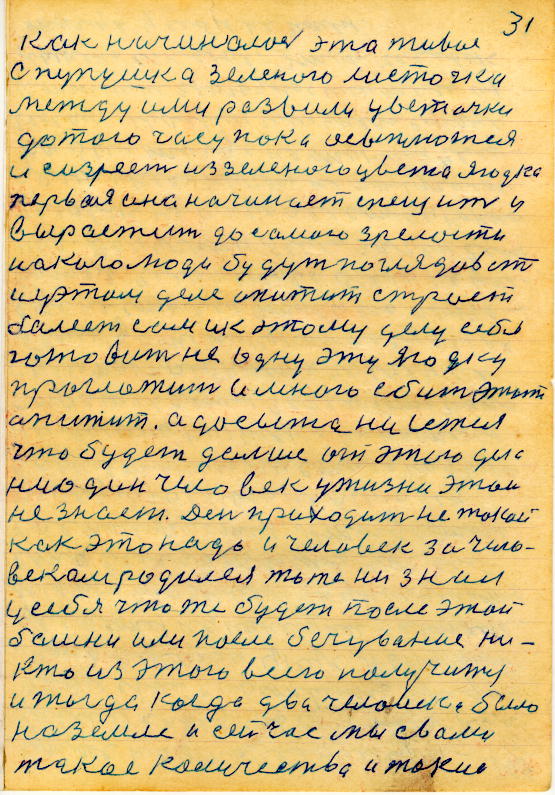 31
как начиналось эта живое
с пупушка зеленого листочка
между ими развили цветочки
до того часу пока осыпются
и созреет из зеленого цвета ягодка
первая она начинает спешит и
вырастит до самого зрелости
на кого люди будут поглядоват
и в этом деле апитит страст
балеет сам и к этому делу себя
готовит не одну эту ягодку
проглотит а много сбит этот
апитит. а досыта ни
что будет дальше от этого дня
ниодин человек у жизни этой
не знает. Ден приходит не такой
как это надо и человек за чило-
веком родился тоже ни знал
у себя что же будет после этой
или после ни-
кто из этого всего получит
и тогда когда два человека было
на земле и сейчас мы свами
такое количества и такие